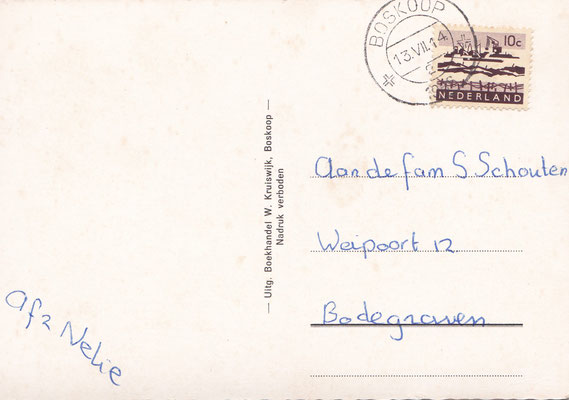 BOSKOOP
13.VII.14
10c
NEDERLAND
— Uitg. Boekhandel W. Kruiswijk, Boskoop —
Nadruk verboden
Aan de fam S Schouten
Weipoort 12
Bodegraven
afz Nelie